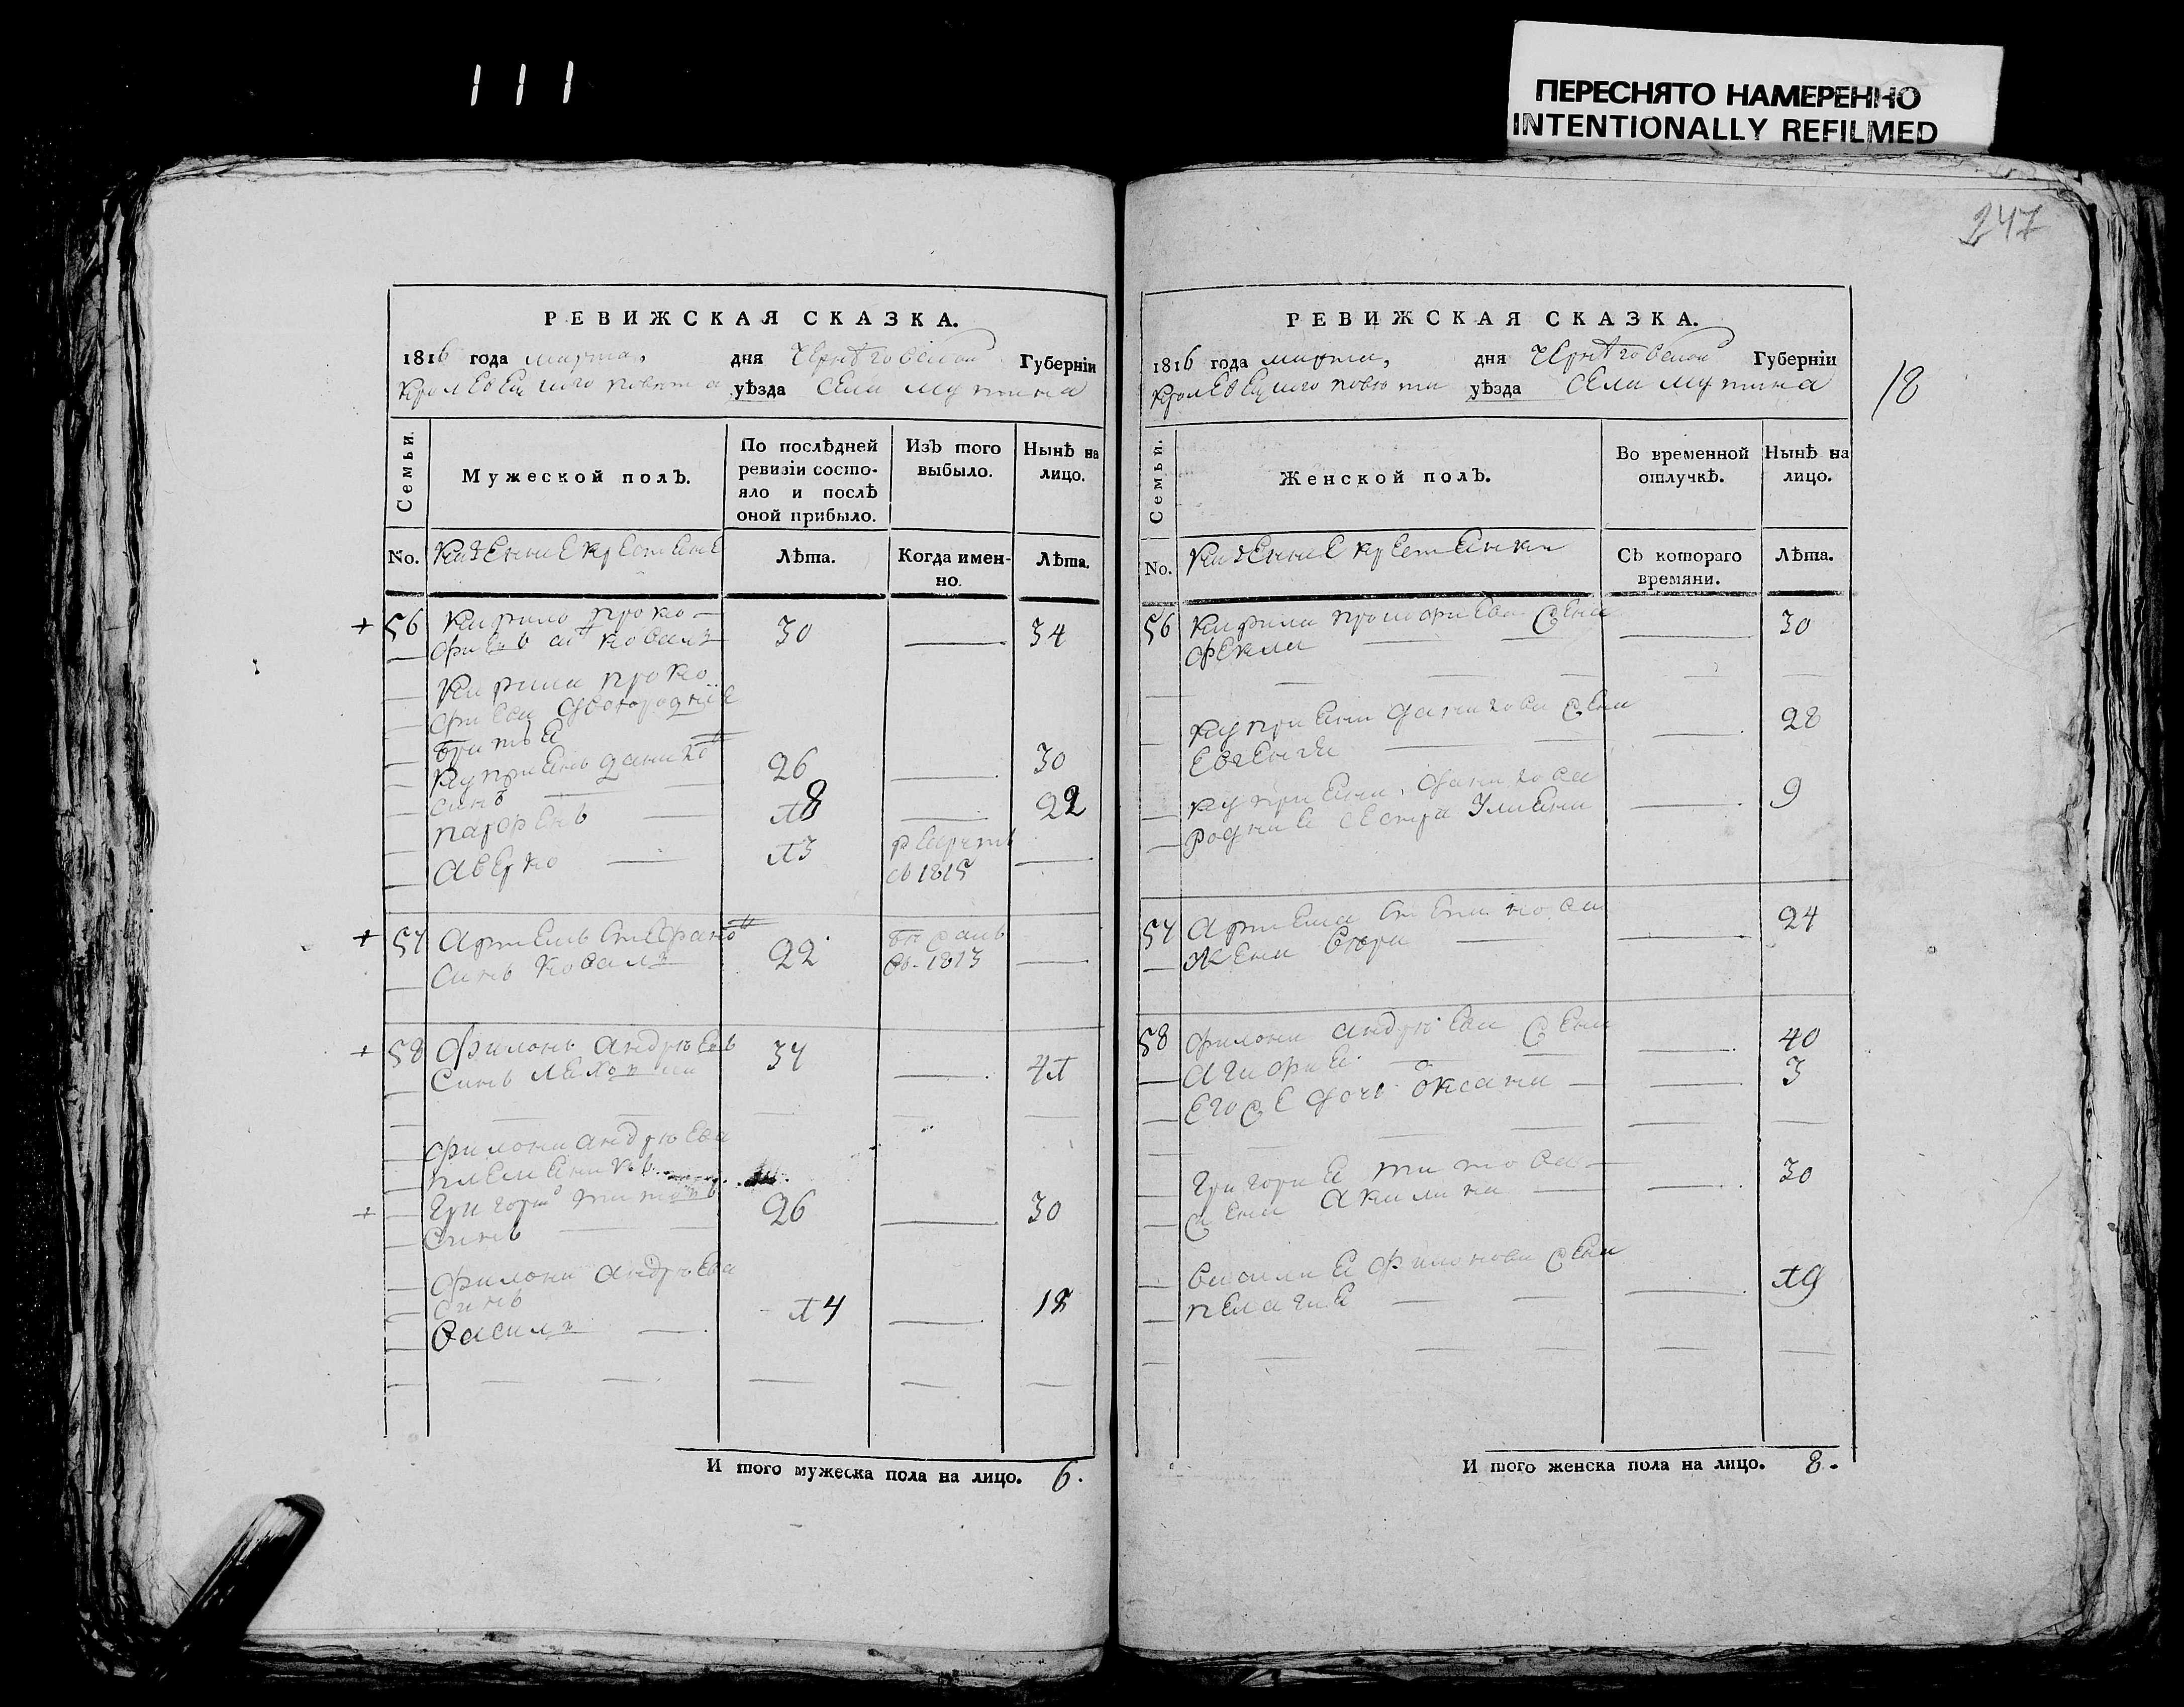 111
ПЕРЕСНЯТО НАМЕРЕННО
INTENTIONALLY REFILMED
247
РЕВИЖСКАЯ СКАЗКА.
1816 года марта, дня Черниговской Губерніи
Кролевецкого повета уѣзда села мутина
Семьи.
Мужеской полъ.
По послѣдней ревизіи состояло и послѣ оной прибыло.
Изъ того выбыло.
Нынѣ на лицо.
No.
Казенние крестяне
Лѣта.
Когда именно.
Лѣта.
56 Кирило проко-
фиевъ Коваль 30 34
Кирила проко
фиева двоюродние
братья
Куприянъ данило
синъ 26 30
парфенъ 18 22
Аверко 13
въ 1815
57 Артемъ Стефано
синъ Коваль 22
въ 1813
58 Филонъ андрѣевъ
синъ 37 41
Филона андрѣева
племяникъ
Григорий титовъ
синъ 26 30
Филона андрѣева
синъ
Василь 14 18
И того мужеска пола на лицо. 6.
РЕВИЖСКАЯ СКАЗКА.
1816 года марта, дня Черниговской Губерніи
Кролевецкого повета уѣзда села мутина
18
Семьи.
Женской полъ.
Во временной отлучкѣ.
Нынѣ на лицо.
No.
Казенние крестянки
Съ котораго времяни.
Лѣта.
56 Кирила прокофиева жена
Фекла 30
Куприяна данилова жена
Евгения 28
Куприяна данилова
родная сестра Улияна 9
57 Артема
жена 24
58 Филона андрѣева жена
Агафия 40
Его же дочь Оксана 3
Григория титова
жена Акилина 30
Василия Филонова жена
пелагия 19
И того женска пола на лицо. 8.